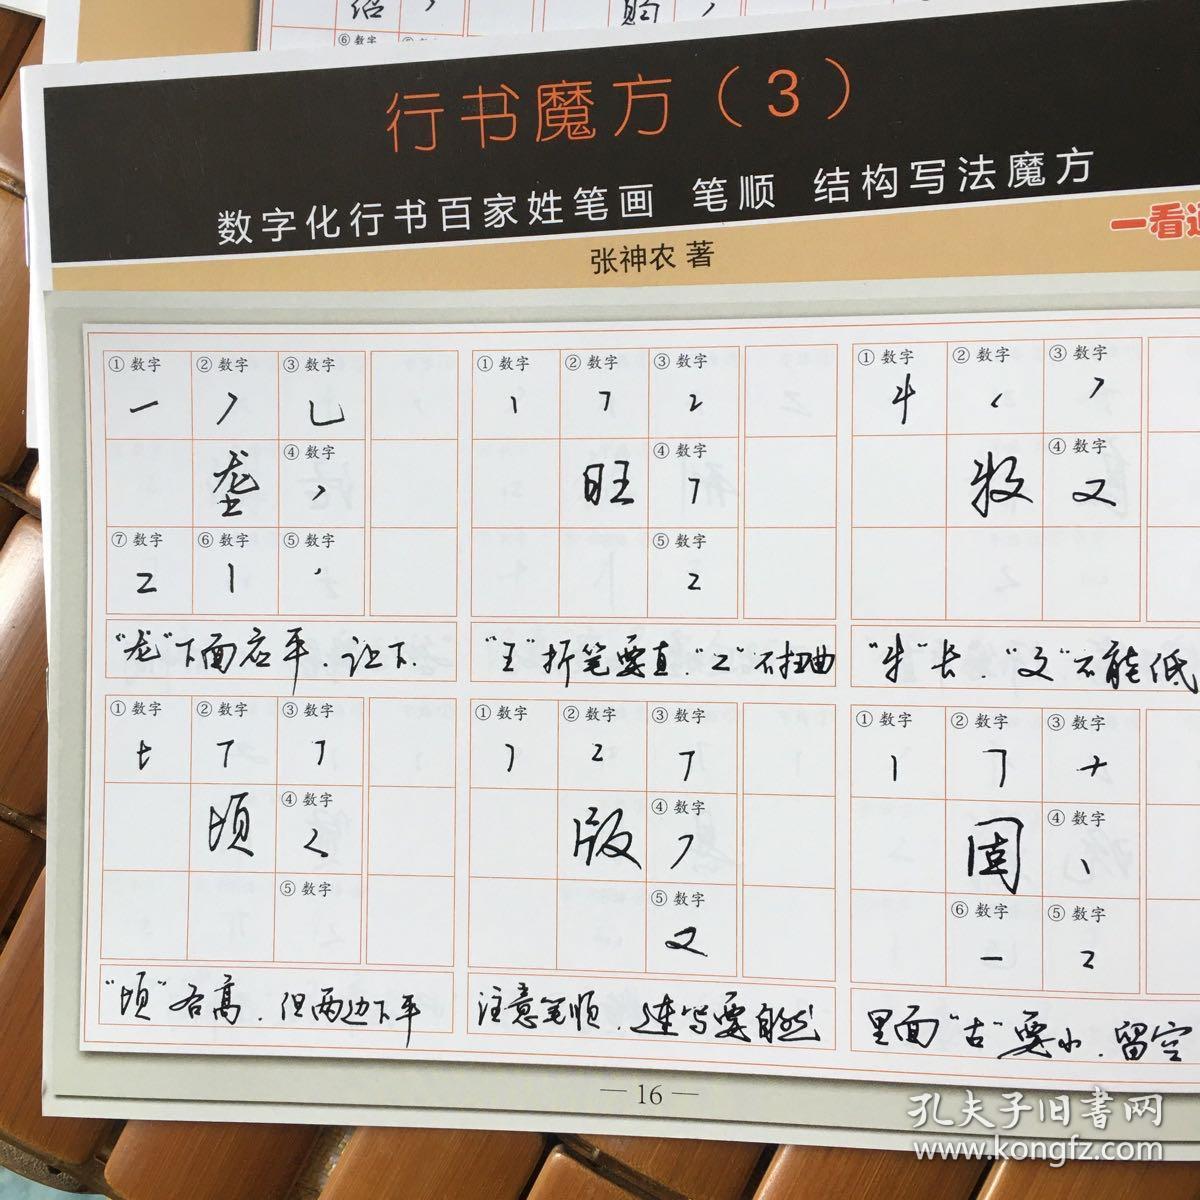 绍
购
⑥ 数字
行书魔方（3）
数字化行书百家姓笔画 笔顺 结构写法魔方
一看
张神农 著
① 数字 ② 数字 ③ 数字
④ 数字
垄
⑦ 数字 ⑥ 数字 ⑤ 数字
"龙"下面右平.让下.
① 数字 ② 数字 ③ 数字
④ 数字
旺
⑤ 数字
"王"折笔要直."2"不扭曲
① 数字 ② 数字 ③ 数字
④ 数字
牧
"牛"长."文"不能低
① 数字 ② 数字 ③ 数字
④ 数字
顷
⑤ 数字
"顷"右高.但两边下平
① 数字 ② 数字 ③ 数字
④ 数字
版
⑤ 数字
注意笔顺.连写要自然
① 数字 ② 数字 ③ 数字
④ 数字
固
⑥ 数字 ⑤ 数字
里面"古"要小.留空
— 16 —
孔夫子旧书网
www.kongfz.com